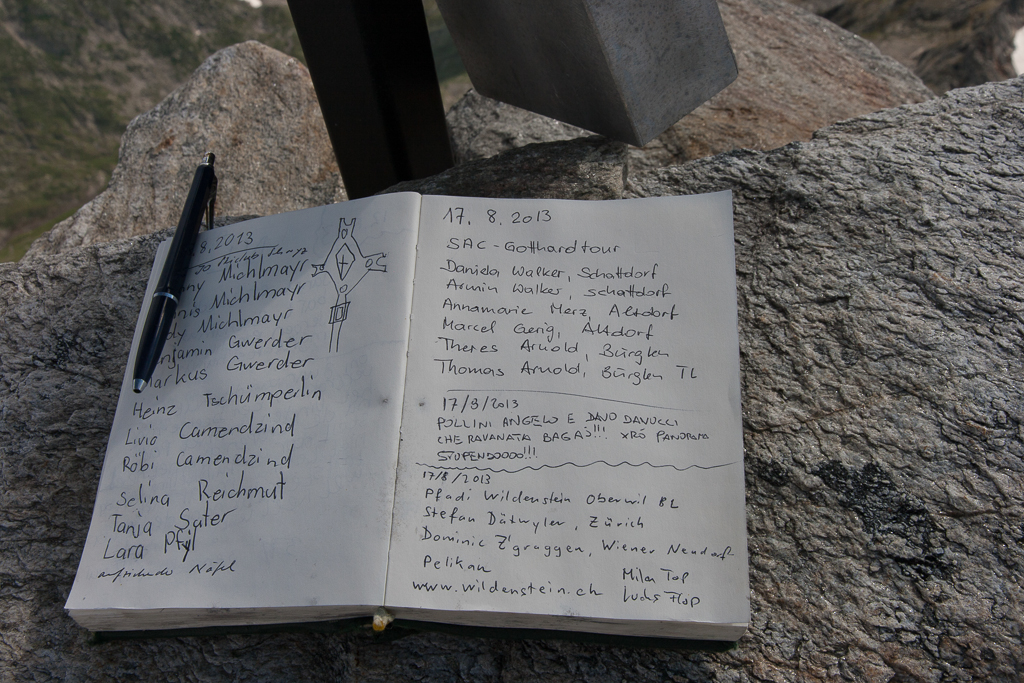 8.2013
Michlmayr
Michlmayr
Michlmayr
Gwerder
Markus Gwerder
Heinz Tschümperlin
Livio Camendzind
Röbi Camendzind
Selina Reichmut
Tanja Suter
Lara Pfyl
17. 8. 2013
SAC-Gotthardtour
Daniela Walker, Schattdorf
Armin Walker, Schattdorf
Annamarie Merz, Altdorf
Marcel Gerig, Altdorf
Theres Arnold, Bürglen
Thomas Arnold, Bürglen TL
17/8/2013
POLLINI ANGELO E DAVO DAVOCCI
CHE RAVANATA BAGAÒ!!! XRÒ PANORAMA
STUPENDOOOO!!!
17/8/2013
Pfadi Wildenstein Oberwil BL
Stefan Dätwyler, Zürich
Dominic Z'graggen, Wiener Neudorf
Pelikan
Milan Top
www.wildenstein.ch
Flop